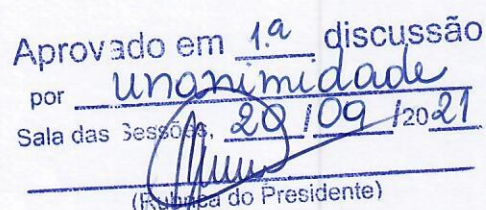 Aprovado em 1.a discussão
por unanimidade
Sala das Sessões, 20 / 09 /2021
(Rubrica do Presidente)